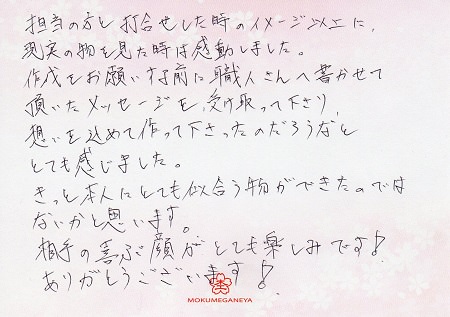 担当の方と打合せした時のイメージ以上に、
現実の物を見た時は感動しました。
作成をお願いする前に職人さんへ書かせて
頂いたメッセージを、受け取って下さり、
想いを込めて作って下さったのだろうなと
とても感じました。
きっと本人にとても似合う物ができたのでは
ないかと思います。
相手の喜ぶ顔がとても楽しみです!
ありがとうございます!
MOKUMEGANEYA